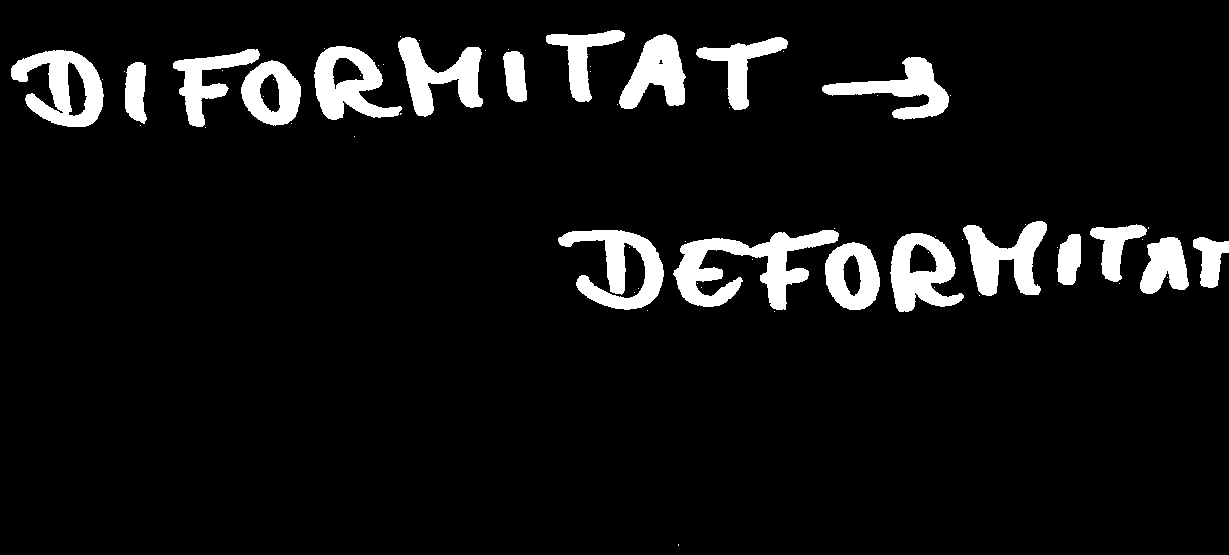 DIFORMITAT →
DEFORMITAT